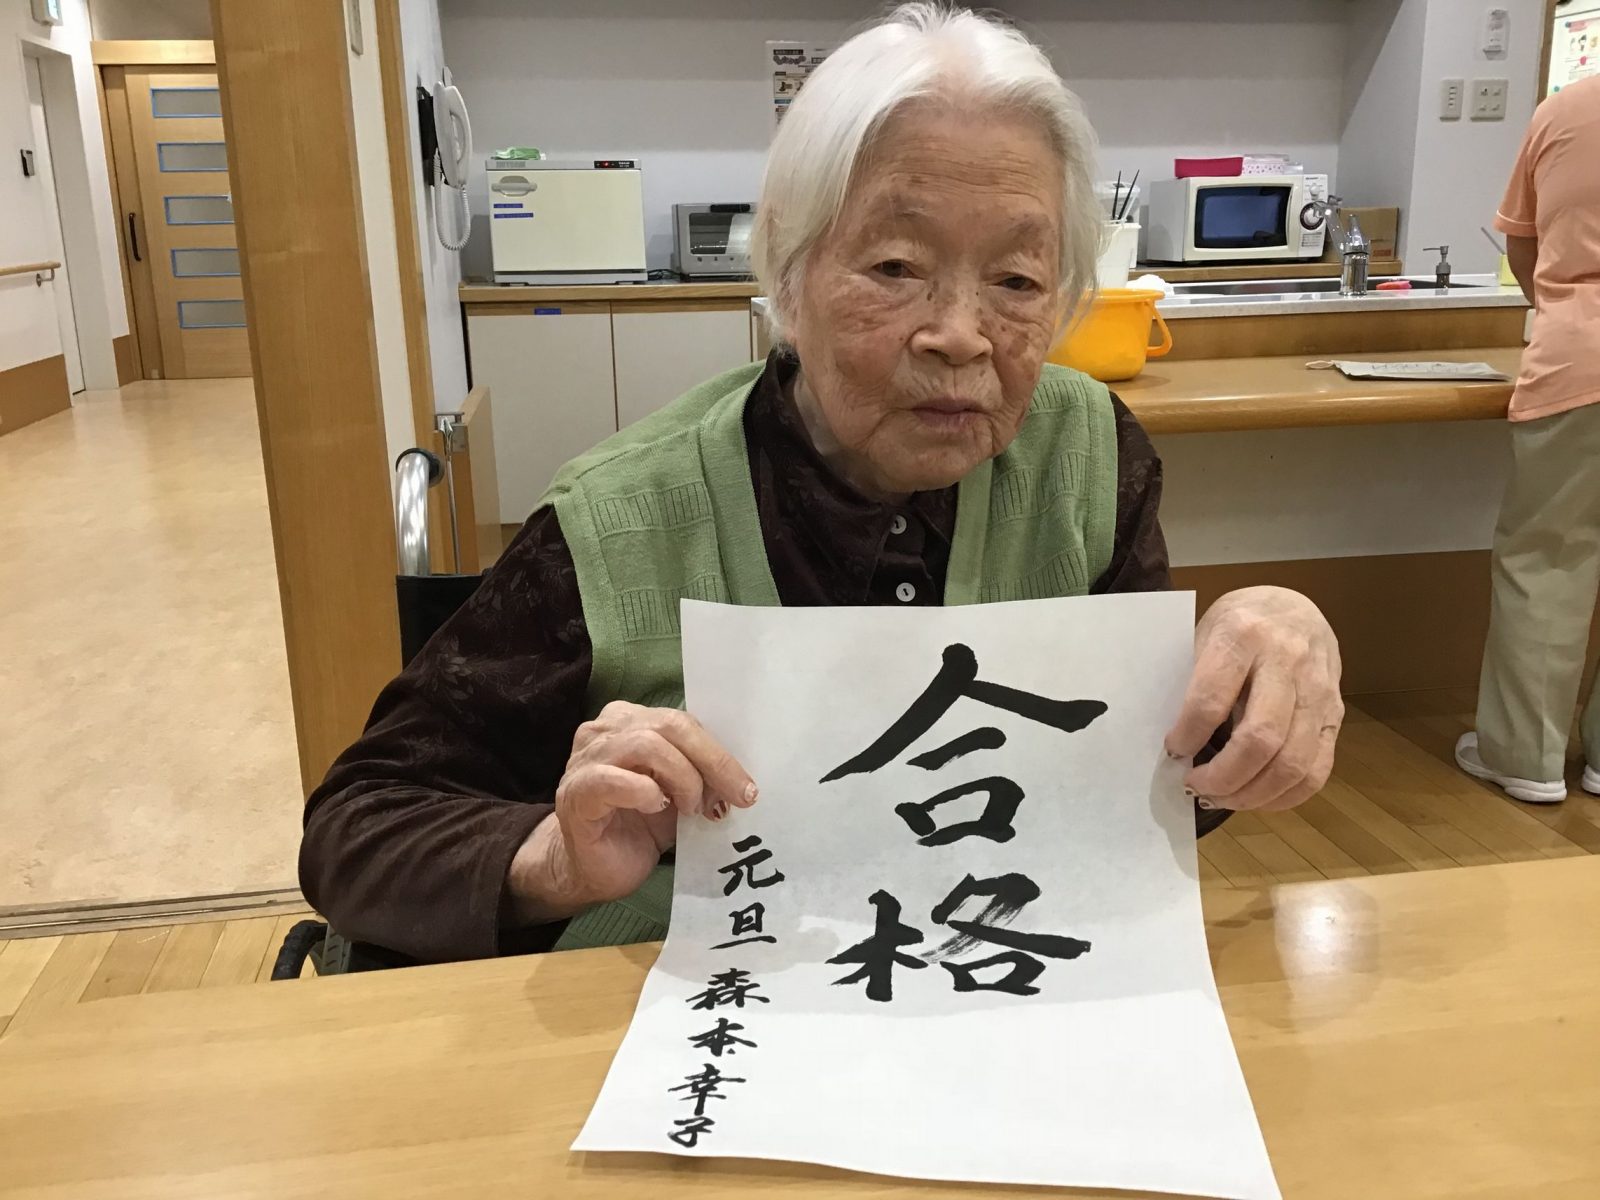 合格
元旦 森本幸子